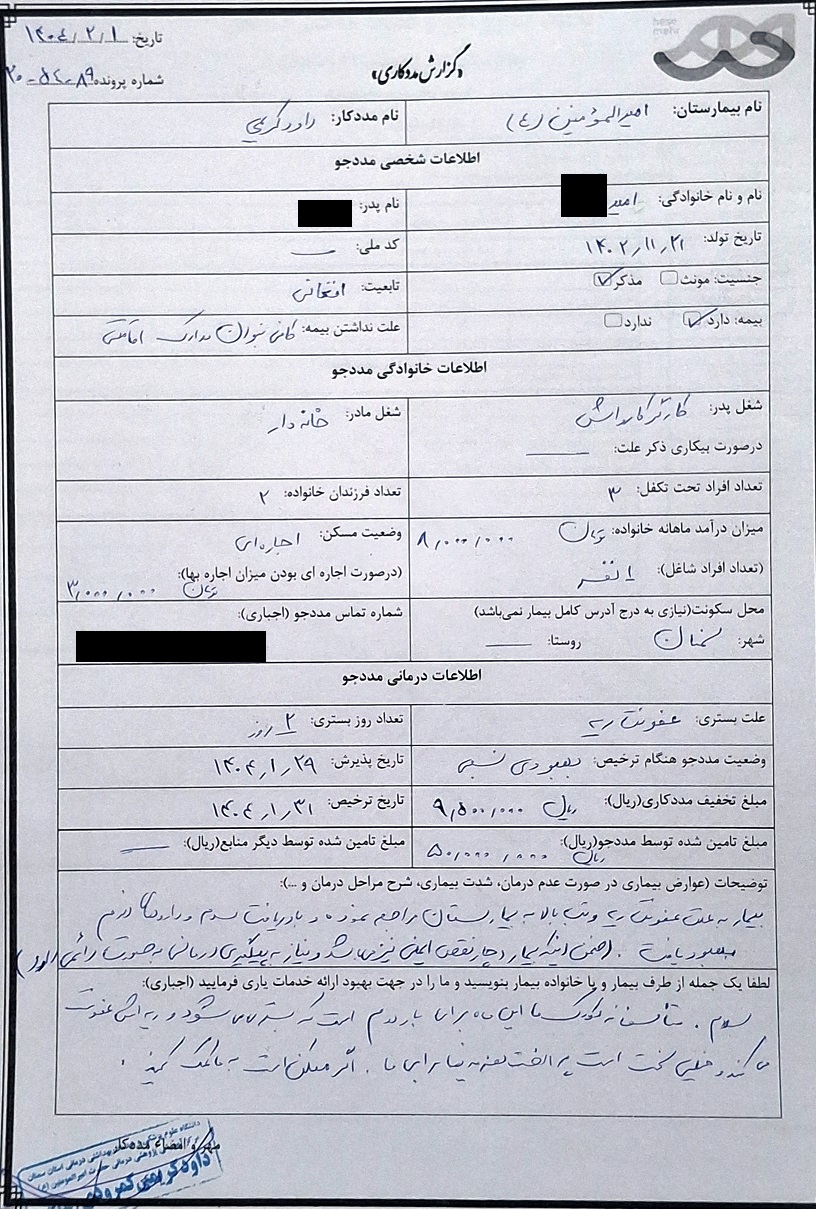 تاریخ: ۱۴۰۴/۲/۱
شماره پرونده
«گزارش مددکاری»
نام بیمارستان: امیرالمؤمنین (ع)
نام مددکار: داود کریمی
اطلاعات شخصی مددجو
نام و نام خانوادگی: امیر
نام پدر:
تاریخ تولد: ۱۴۰۲/۱۱/۲۱
کد ملی: —
جنسیت: مونث مذکر
تابعیت: افغانی
بیمه: دارد ندارد
علت نداشتن بیمه: کافی نبودن مدارک اقامتی
اطلاعات خانوادگی مددجو
شغل پدر: کارگر
شغل مادر: خانه دار
درصورت بیکاری ذکر علت: —
تعداد افراد تحت تکفل: ۳
تعداد فرزندان خانواده: ۲
میزان درآمد ماهانه خانواده: ۸/۰۰۰/۰۰۰ تومان
(تعداد افراد شاغل): ۱ نفر
وضعیت مسکن: اجاره‌ای
(درصورت اجاره ای بودن میزان اجاره بها):
۳/۰۰۰/۰۰۰ تومان
محل سکونت(نیازی به درج آدرس کامل بیمار نمی‌باشد)
شهر: سمنان روستا: —
شماره تماس مددجو (اجباری):
اطلاعات درمانی مددجو
علت بستری: عفونت ریه
تعداد روز بستری: ۲ روز
وضعیت مددجو هنگام ترخیص: بهبودی نسبی
تاریخ پذیرش: ۱۴۰۴/۱/۲۹
مبلغ تخفیف مددکاری(ریال): ۹/۵۰۰/۰۰۰ ریال
تاریخ ترخیص: ۱۴۰۴/۱/۳۱
مبلغ تامین شده توسط مددجو(ریال): ۵۰/۰۰۰/۰۰۰ ریال
مبلغ تامین شده توسط دیگر منابع(ریال): —
توضیحات (عوارض بیماری در صورت عدم درمان، شدت بیماری، شرح مراحل درمان و ...):
بیمار به علت عفونت ریه و تب بالا به بیمارستان مراجعه نموده و با دریافت سرم و داروهای لازم
بهبود یافت. (ضمن اینکه بیمار دچار نقص ایمنی نیز می باشد و نیاز به پیگیری درمانی به صورت دائمی دارد)
لطفا یک جمله از طرف بیمار و یا خانواده بیمار بنویسید و ما را در جهت بهبود ارائه خدمات یاری فرمایید (اجباری):
سلام. متأسفانه کودک ما این ماه برای بار دوم است که بستری می شود و ریه اش عفونت
می کند و خیلی سخت است پرداخت هزینه ها برای ما. اگر ممکن است به ما کمک کنید.
مهر و امضاء مددکار